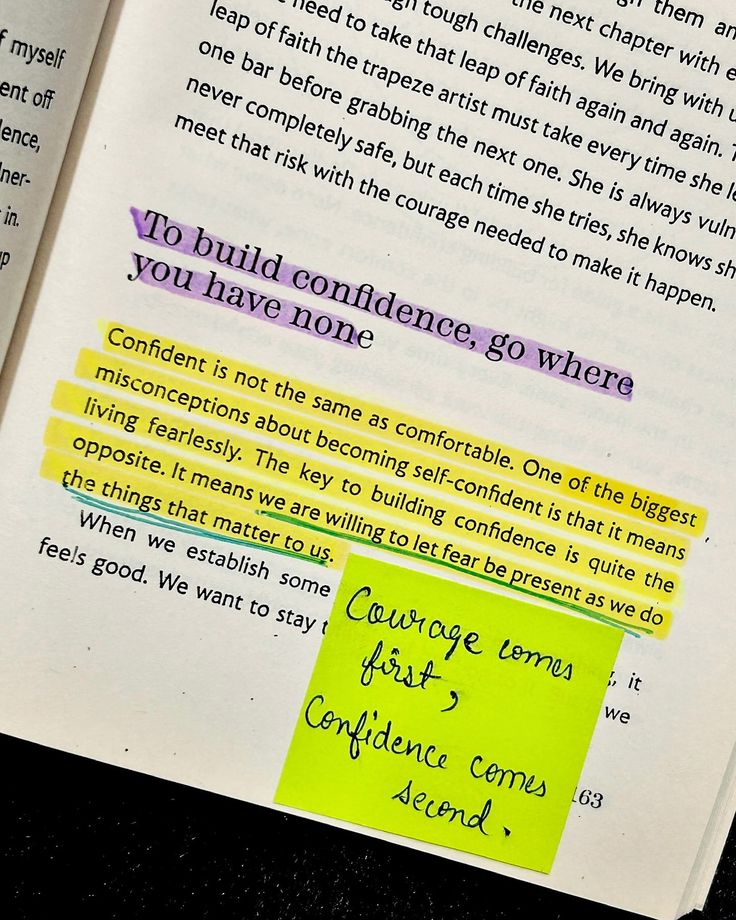 f myself
ent off
lence,
lner-
in.
up
the next chapter with e
need to take that leap of faith again and again. T
tough challenges. We bring with u
leap of faith the trapeze artist must take every time she le
one bar before grabbing the next one. She is always vuln
never completely safe, but each time she tries, she knows sh
meet that risk with the courage needed to make it happen.
To build confidence, go where
you have none
Confident is not the same as comfortable. One of the biggest
misconceptions about becoming self-confident is that it means
living fearlessly. The key to building confidence is quite the
opposite. It means we are willing to let fear be present as we do
the things that matter to us.
When we establish some
feels good. We want to stay t
, it
we
Courage comes
first,
Confidence comes
second.
163